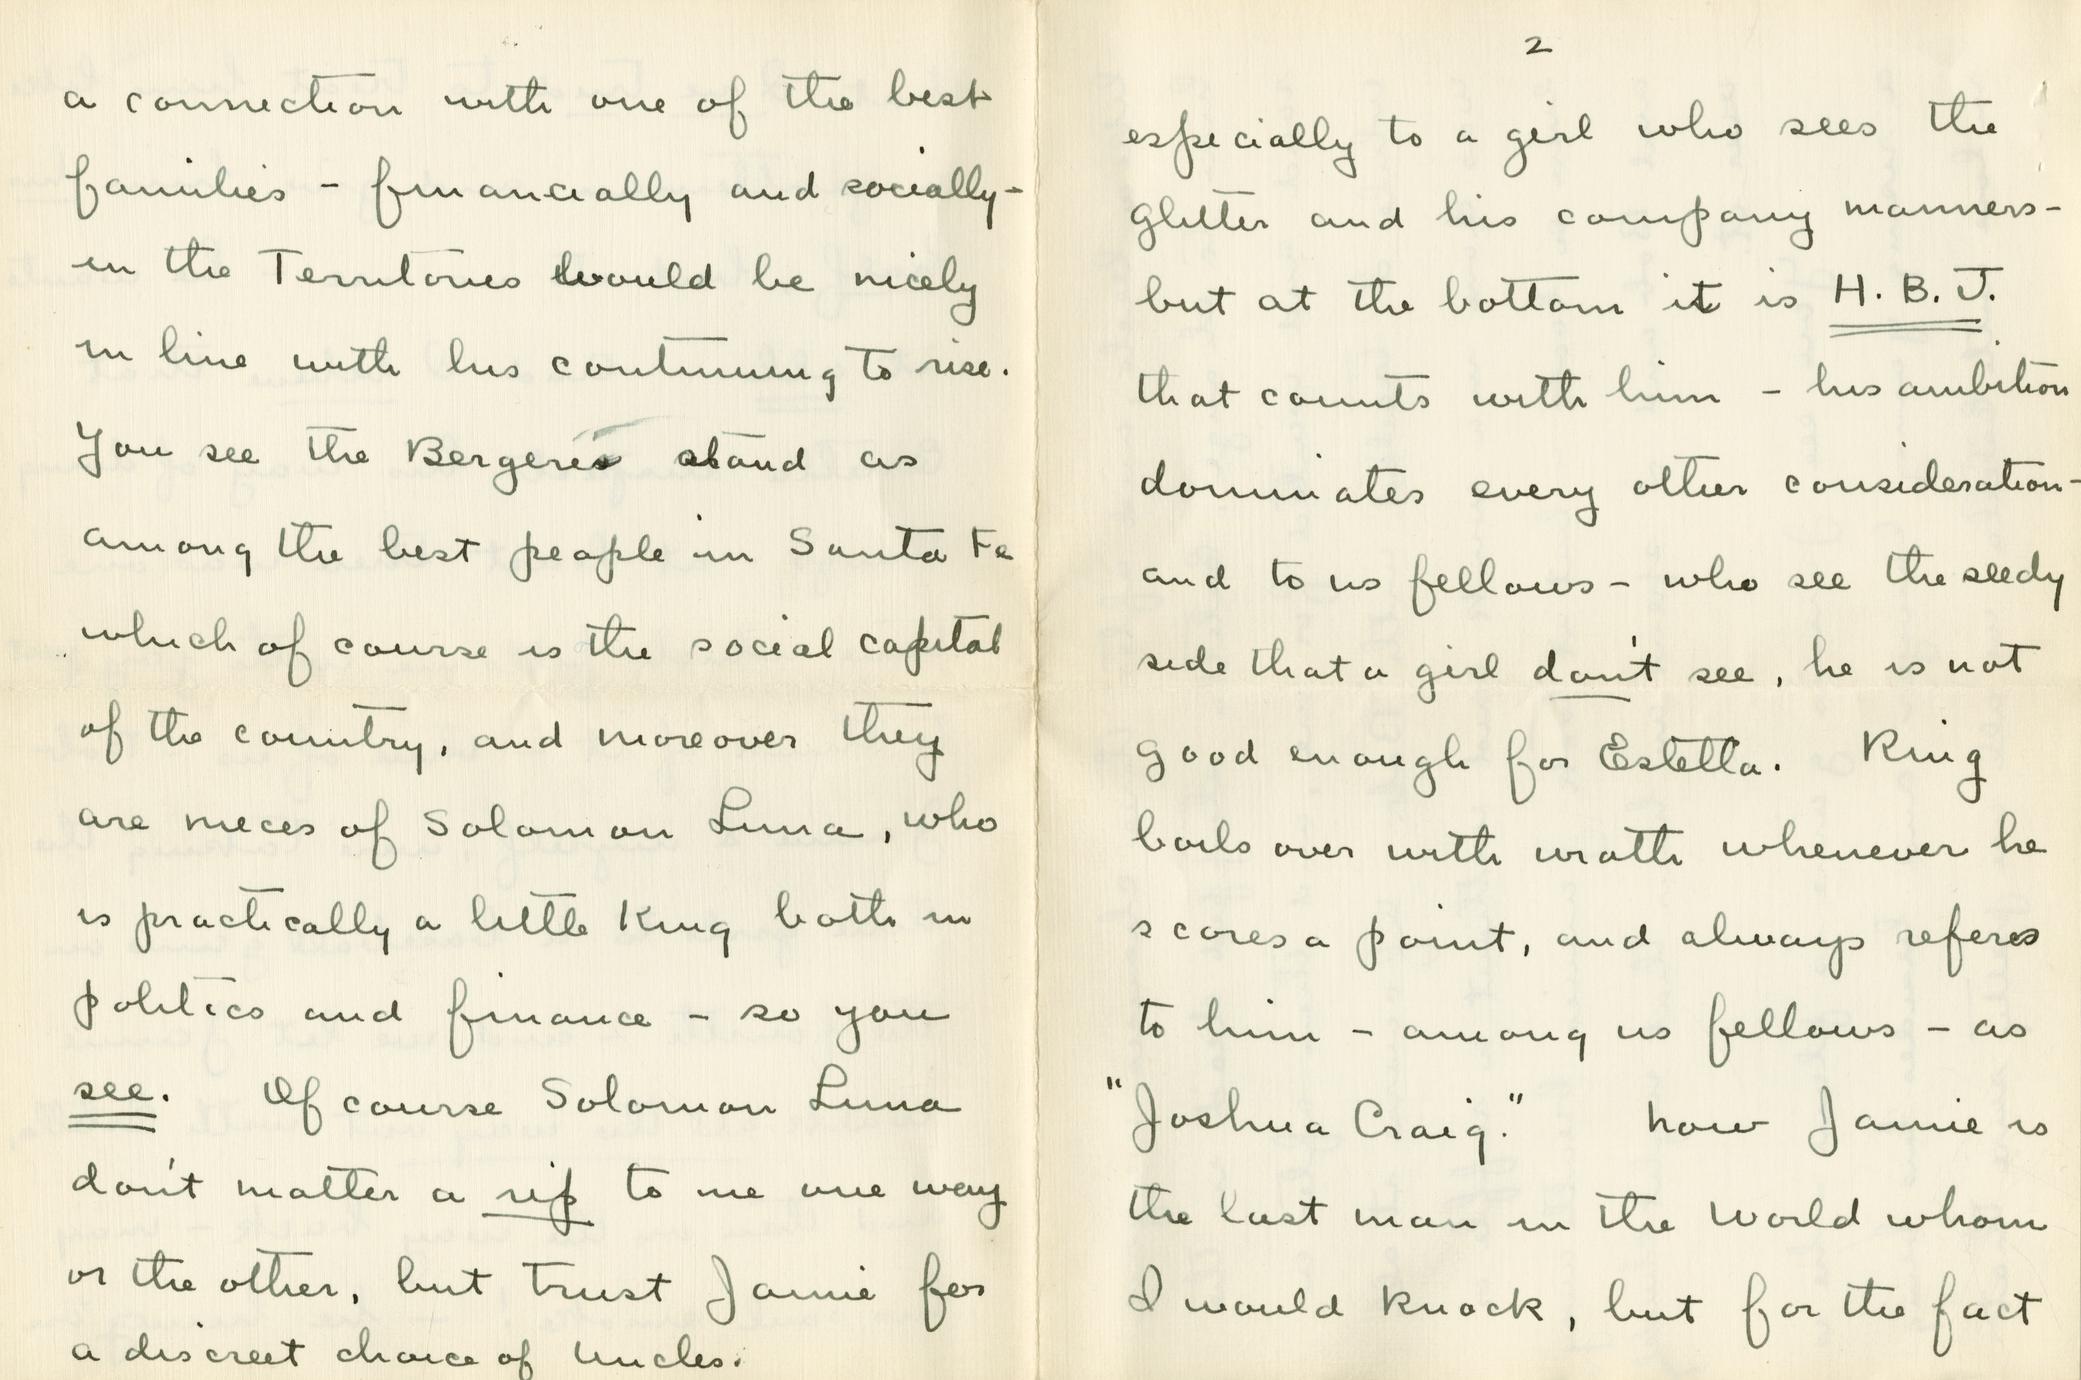 a connection with one of the best
families - financially and socially -
in the Territories would be nicely
in line with his continuing to rise.
You see the Bergeres stand as
among the best people in Santa Fe
which of course is the social capital
of the country, and moreover they
are nieces of Solomon Luna, who
is practically a little King both in
politics and finance - so you
see. Of course Solomon Luna
don't matter a rip to me one way
or the other, but trust Jamie for
a discreet choice of Uncles.
2
especially to a girl who sees the
glitter and his company manners -
but at the bottom it is H. B. J.
that counts with him - his ambition
dominates every other consideration -
and to us fellows - who see the seedy
side that a girl don't see, he is not
good enough for Estella. King
boils over with wrath whenever he
scores a point, and always referes
to him - among us fellows - as
"Joshua Craig." Now Jamie is
the last man in the World whom
I would knock, but for the fact